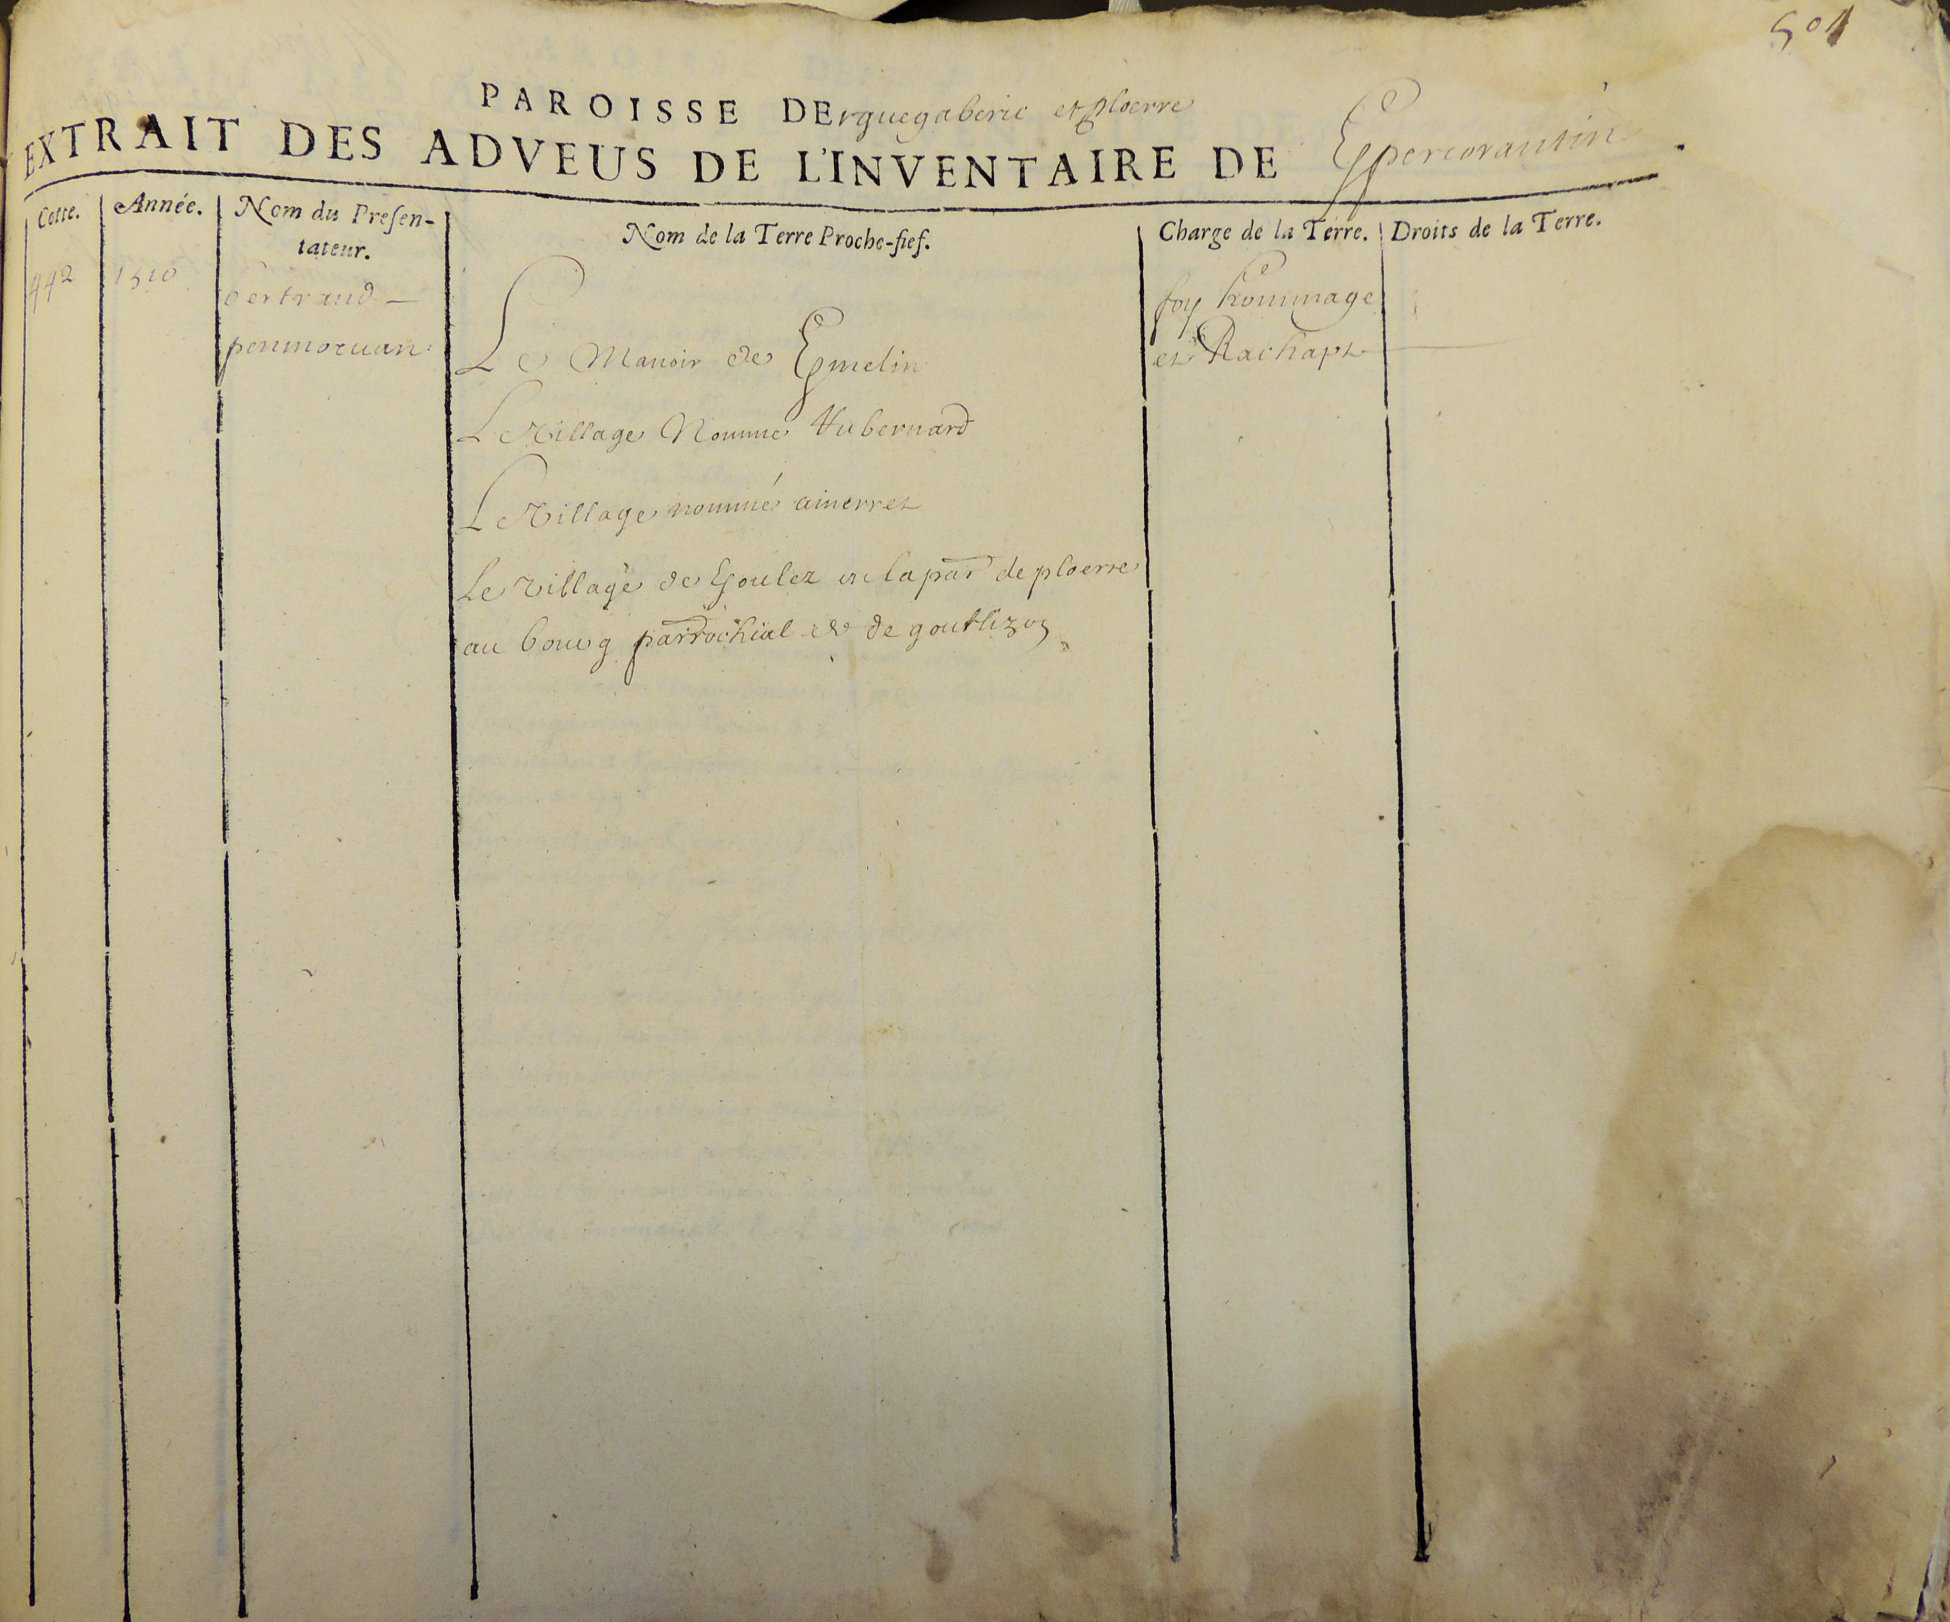 501
PAROISSE DErguegaberic et ploerre
EXTRAIT DES ADVEUS DE L'INVENTAIRE DE Kpercorantin
Cotte. Année. Nom du Presentateur. Nom de la Terre Proche-fief. Charge de la Terre. Droits de la Terre.
442 1510 bertrand
penmorvan
Le Manoir de Kmelin
Le Village Nommé bernard
Le Village nommé ainerret
Le village de Kgoulez en la par de ploerre
au bourg parrochial de
foy hommage
et Rachapt